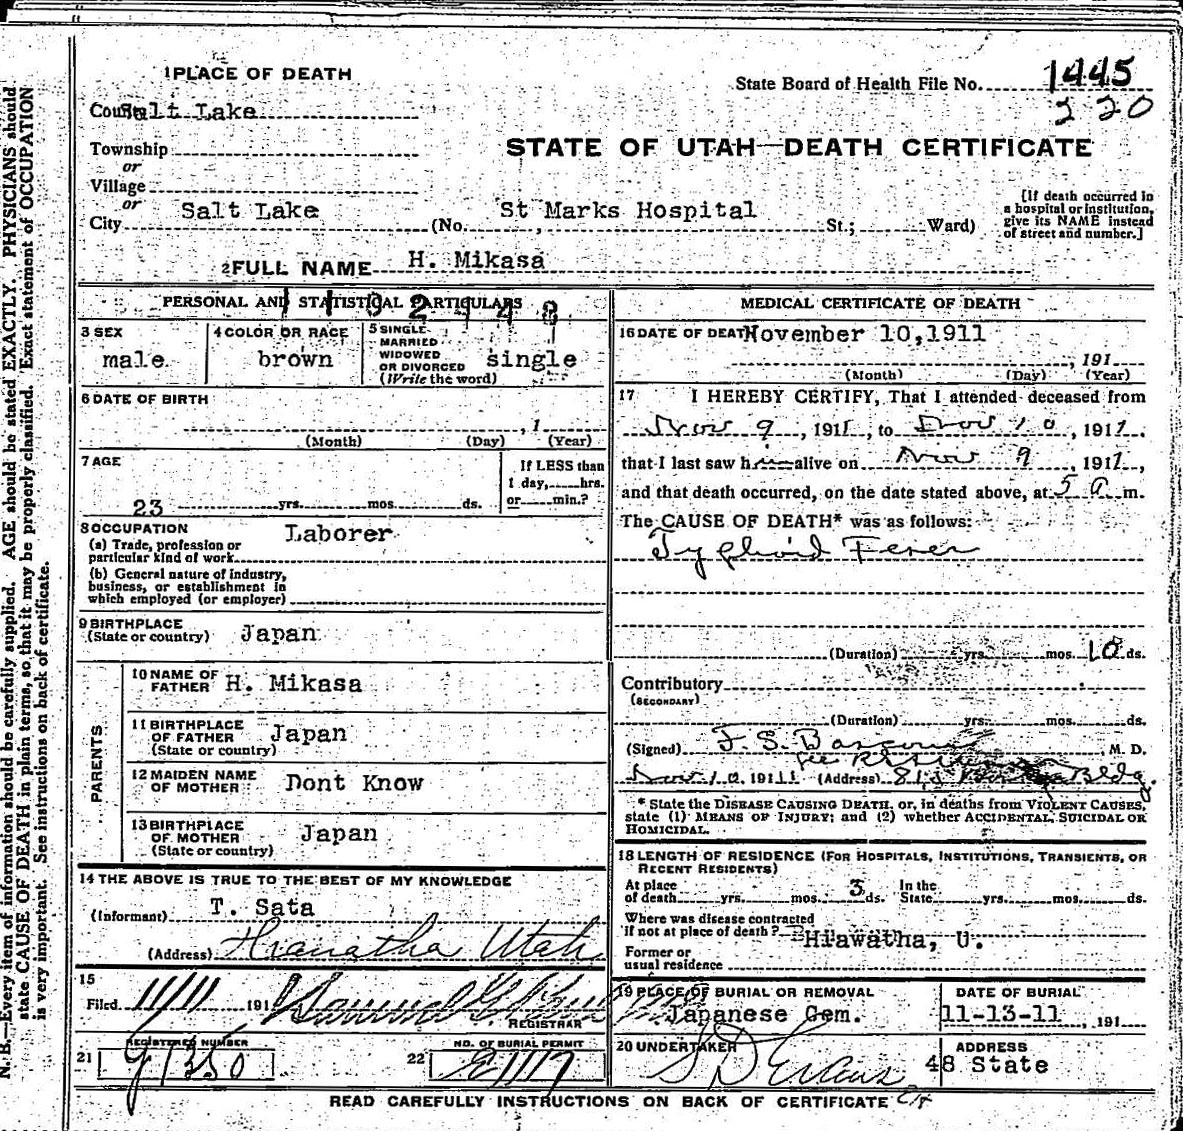 1 PLACE OF DEATH
State Board of Health File No. 1445
220
County Salt Lake
Township
STATE OF UTAH—DEATH CERTIFICATE
or
Village
or
City Salt Lake (No. St Marks Hospital St.; Ward)
[If death occurred in a hospital or institution, give its NAME instead of street and number.]
2 FULL NAME H. Mikasa
PERSONAL AND STATISTICAL PARTICULARS
1102948
3 SEX
male
4 COLOR OR RACE
brown
5 SINGLE
MARRIED
WIDOWED
OR DIVORCED
(Write the word)
single
6 DATE OF BIRTH
, 1
(Month) (Day) (Year)
7 AGE
23 yrs. mos. ds.
If LESS than
1 day, hrs.
or min.?
8 OCCUPATION
Laborer
(a) Trade, profession or
particular kind of work
(b) General nature of industry,
business, or establishment in
which employed (or employer)
9 BIRTHPLACE
(State or country) Japan
PARENTS
10 NAME OF
FATHER H. Mikasa
11 BIRTHPLACE
OF FATHER
(State or country) Japan
12 MAIDEN NAME
OF MOTHER Dont Know
13 BIRTHPLACE
OF MOTHER
(State or country) Japan
14 THE ABOVE IS TRUE TO THE BEST OF MY KNOWLEDGE
(Informant) T. Sata
(Address) Hiawatha Utah
15
Filed 11/11 191
REGISTRAR
REGISTERED NUMBER
21 1350
NO. OF BURIAL PERMIT
22 E1117
MEDICAL CERTIFICATE OF DEATH
16 DATE OF DEATH November 10,1911
, 191
(Month) (Day) (Year)
17 I HEREBY CERTIFY, That I attended deceased from
Nov 9, 1911, to Nov 10, 1911,
that I last saw him alive on Nov 9, 1911,
and that death occurred, on the date stated above, at 5 a m.
The CAUSE OF DEATH* was as follows:
Typhoid Fever
(Duration) yrs. mos. 18 ds.
Contributory
(SECONDARY)
(Duration) yrs. mos. ds.
(Signed) F. S. Bascom M. D.
Nov 10, 1911 (Address) Bldg.
* State the DISEASE CAUSING DEATH, or, in deaths from VIOLENT CAUSES,
state (1) MEANS OF INJURY; and (2) whether ACCIDENTAL, SUICIDAL OR
HOMICIDAL.
18 LENGTH OF RESIDENCE (FOR HOSPITALS, INSTITUTIONS, TRANSIENTS, OR
RECENT RESIDENTS)
At place
of death yrs. mos. 3 ds.
In the
State yrs. mos. ds.
Where was disease contracted
if not at place of death? Hiawatha, U.
Former or
usual residence
19 PLACE OF BURIAL OR REMOVAL
Japanese Cem.
DATE OF BURIAL
11-13-11, 191
20 UNDERTAKER
S D Evans
ADDRESS
48 State
READ CAREFULLY INSTRUCTIONS ON BACK OF CERTIFICATE
N. B.—Every item of information should be carefully supplied. AGE should be stated EXACTLY. PHYSICIANS should
state CAUSE OF DEATH in plain terms, so that it may be properly classified. Exact statement of OCCUPATION
is very important. See instructions on back of certificate.